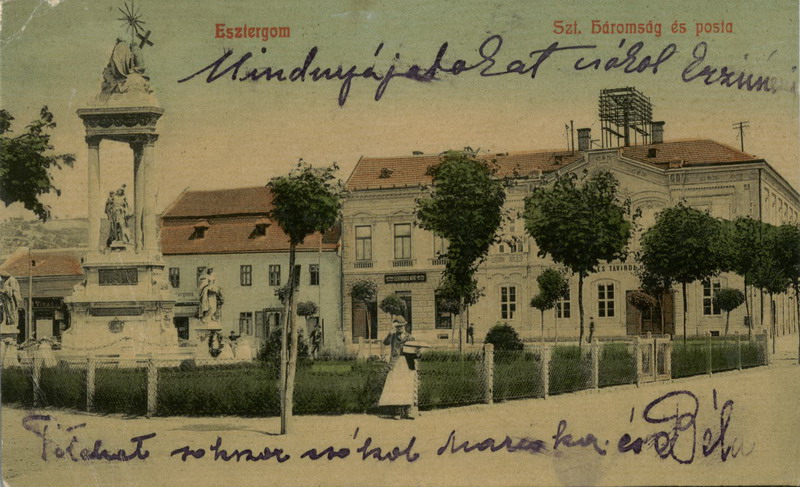 Esztergom
Szt. háromság és posta
Mindnyájatokat csókol Erzsi
ÉS TÁVIRDA
sokszor csókol Mariska és Béla